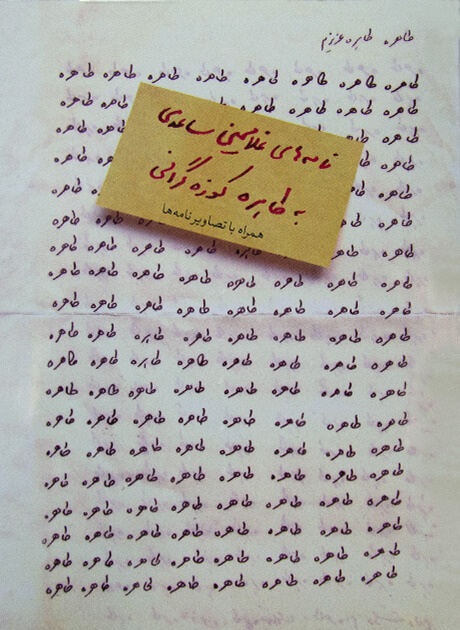 طاهره طاهره عزیزم
طاهره طاهره طاهره طاهره طاهره طاهره طاهره طاهره
طاهره طاهره طاهره طاهره طاهره طاهره
طاهره طاهره طاهره طاهره
طاهره طاهره طاهره
طاهره طاهره طاهره
طاهره طاهره طاهره طاهره
نامه‌های غلامحسین ساعدی
به طاهره کوزه‌گرانی
همراه با تصاویر نامه‌ها
طاهره طاهره طاهره طاهره طاهره طاهره
طاهره طاهره طاهره طاهره طاهره طاهره طاهره طاهره
طاهره طاهره طاهره طاهره طاهره طاهره طاهره طاهره
طاهره طاهره طاهره طاهره طاهره طاهره طاهره طاهره
طاهره طاهره طاهره طاهره طاهره طاهره طاهره طاهره
طاهره طاهره طاهره طاهره طاهره طاهره طاهره طاهره
طاهره طاهره طاهره طاهره طاهره طاهره طاهره طاهره
طاهره طاهره طاهره طاهره طاهره طاهره طاهره طاهره
طاهره طاهره طاهره طاهره طاهره طاهره طاهره طاهره
طاهره طاهره طاهره طاهره طاهره طاهره طاهره طاهره
طاهره طاهره طاهره طاهره طاهره طاهره طاهره طاهره
طاهره طاهره طاهره طاهره طاهره طاهره طاهره طاهره
طاهره طاهره طاهره طاهره طاهره طاهره طاهره طاهره